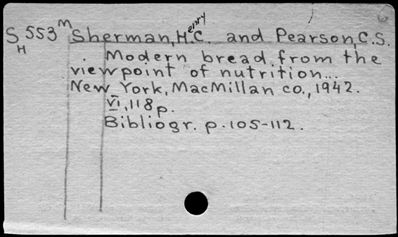 S553 M Sherman, H.C. enry and Pearson, C.S.
H
Modern bread from the
viewpoint of nutrition...
New York, MacMillan co., 1942.
VI, 118p.
Bibliogr. p. 105-112.